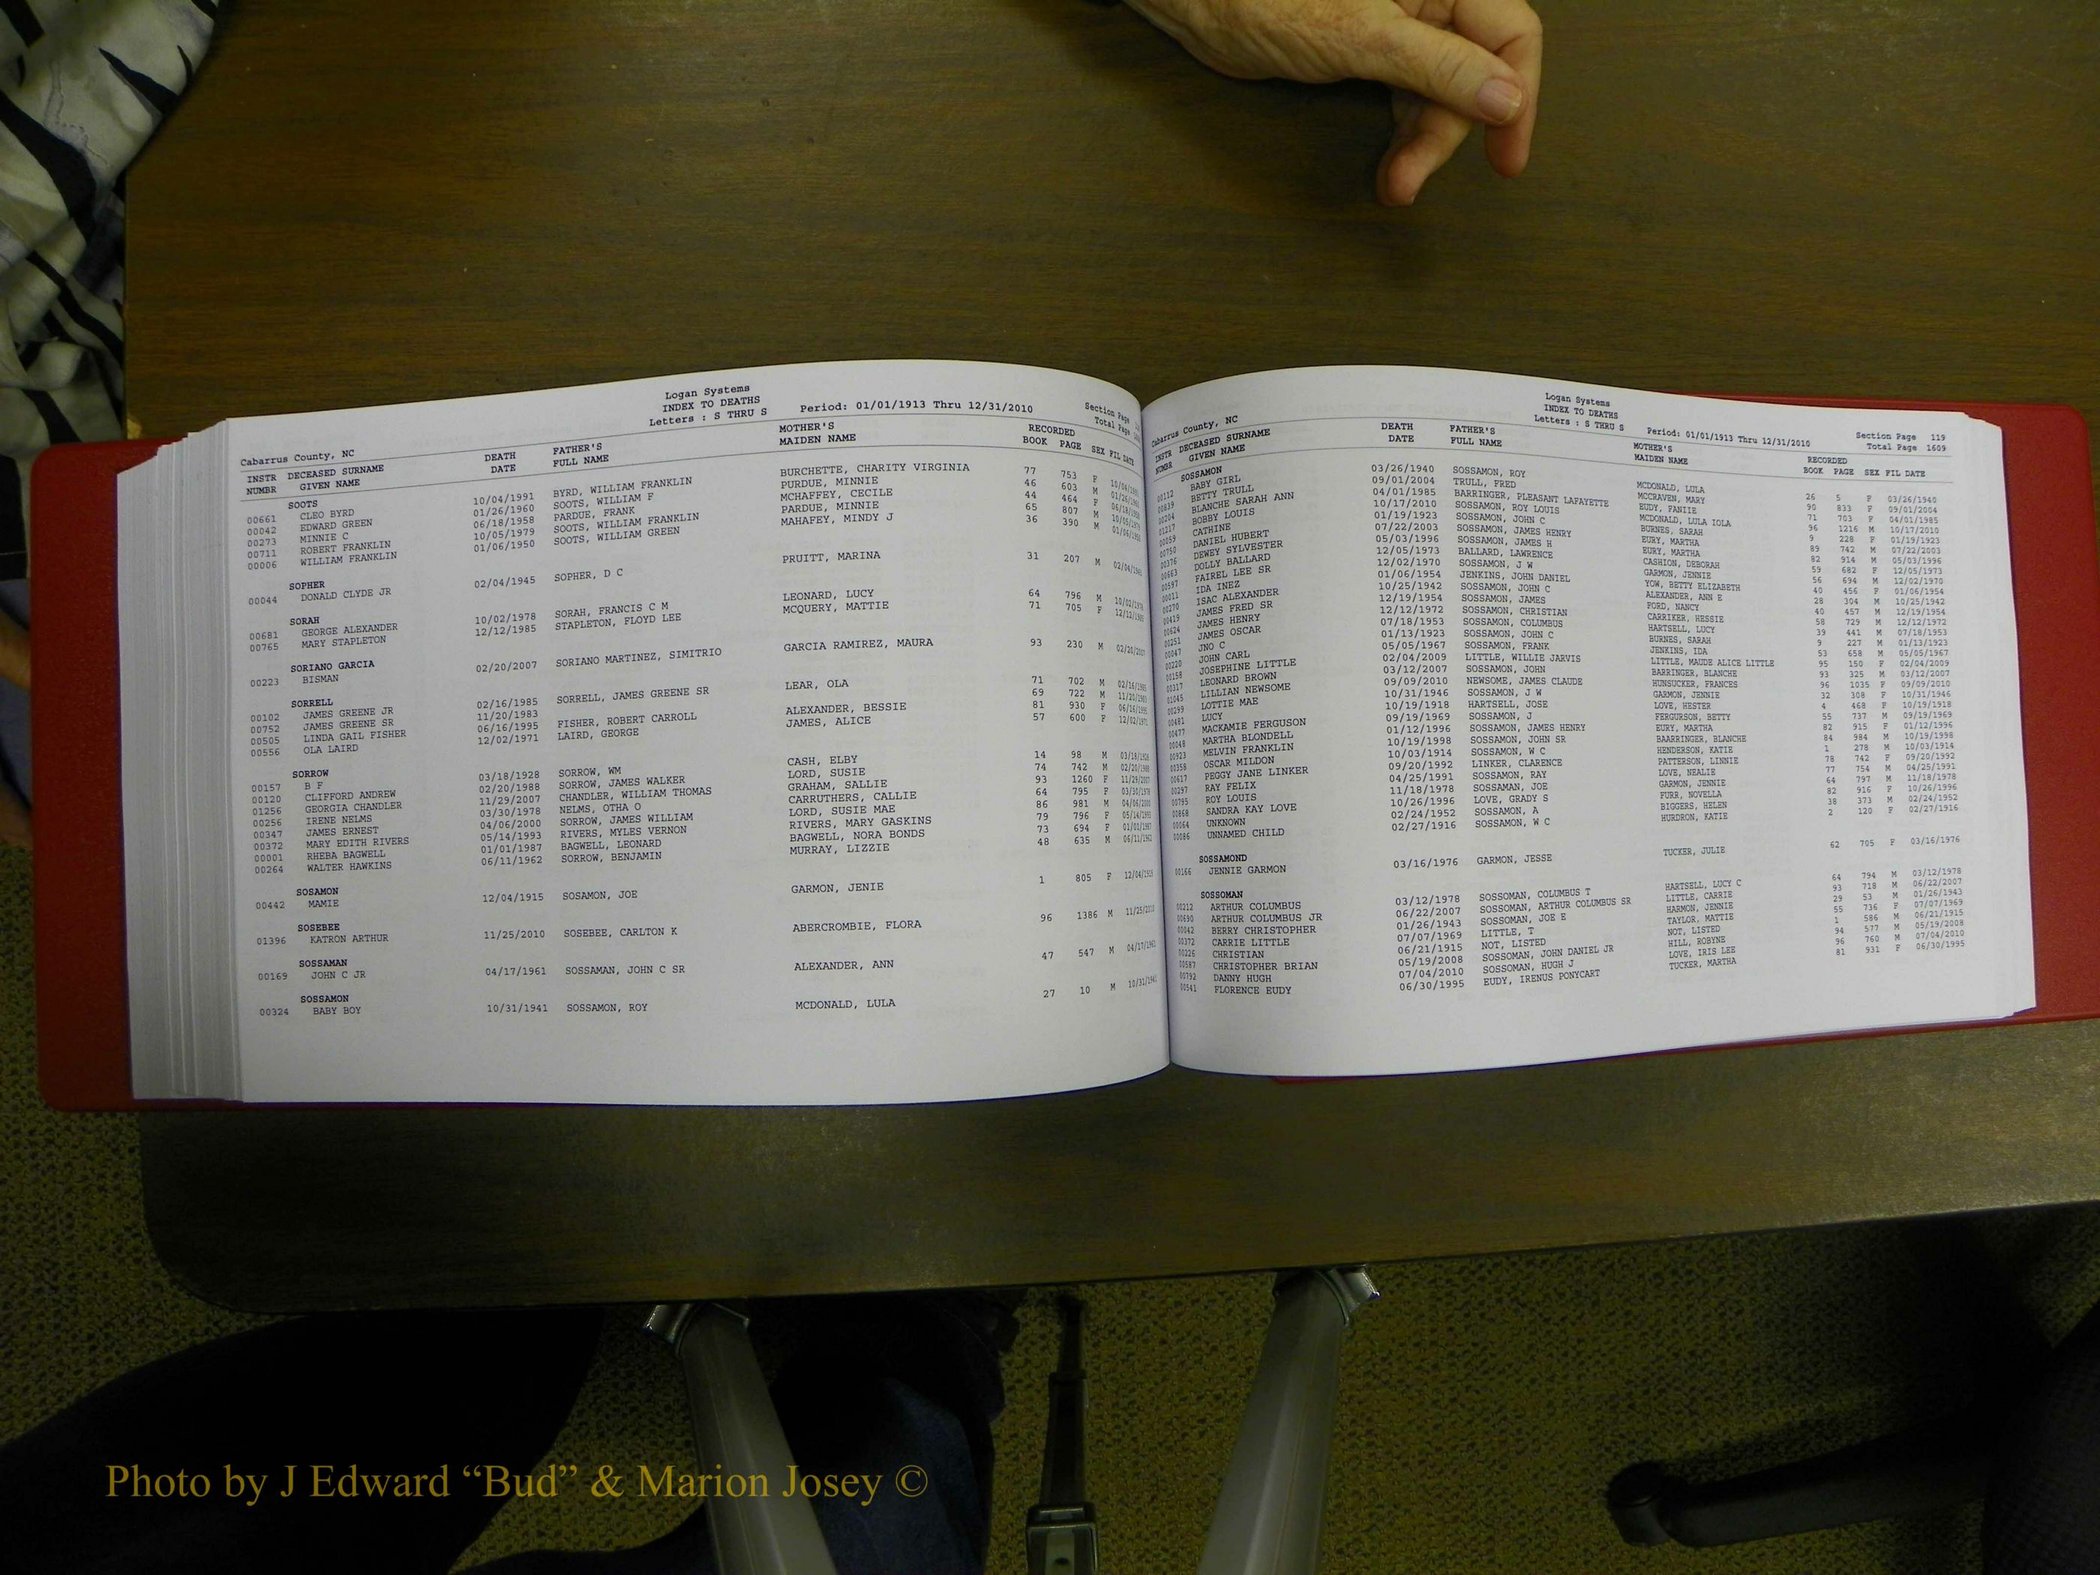 Logan Systems
INDEX TO DEATHS
Letters : S THRU S Period: 01/01/1913 Thru 12/31/2010 Section Page
Cabarrus County, NC Total Page
INSTR DECEASED SURNAME DEATH FATHER'S MOTHER'S RECORDED
NUMBR GIVEN NAME DATE FULL NAME MAIDEN NAME BOOK PAGE SEX FIL DATE
SOOTS
00661 CLEO BYRD 10/04/1991 BYRD, WILLIAM FRANKLIN BURCHETTE, CHARITY VIRGINIA 77 753 F 10/04/1991
00042 EDWARD GREEN 01/26/1960 SOOTS, WILLIAM F PURDUE, MINNIE 46 603 M 01/26/1960
00273 MINNIE C 06/18/1958 PARDUE, FRANK MCHAFFEY, CECILE 44 464 F 06/18/1958
00711 ROBERT FRANKLIN 10/05/1979 SOOTS, WILLIAM FRANKLIN PARDUE, MINNIE 65 807 M 10/05/1979
00006 WILLIAM FRANKLIN 01/06/1950 SOOTS, WILLIAM GREEN MAHAFEY, MINDY J 36 390 M 01/06/1950
SOPHER
00044 DONALD CLYDE JR 02/04/1945 SOPHER, D C PRUITT, MARINA 31 207 M 02/04/1945
SORAH
00681 GEORGE ALEXANDER 10/02/1978 SORAH, FRANCIS C M LEONARD, LUCY 64 796 M 10/02/1978
00765 MARY STAPLETON 12/12/1985 STAPLETON, FLOYD LEE MCQUERY, MATTIE 71 705 F 12/12/1985
SORIANO GARCIA
00223 BISMAN 02/20/2007 SORIANO MARTINEZ, SIMITRIO GARCIA RAMIREZ, MAURA 93 230 M 02/20/2007
SORRELL
00102 JAMES GREENE JR 02/16/1985 SORRELL, JAMES GREENE SR LEAR, OLA 71 702 M 02/16/1985
00752 JAMES GREENE SR 11/20/1983 69 722 M 11/20/1983
00505 LINDA GAIL FISHER 06/16/1995 FISHER, ROBERT CARROLL ALEXANDER, BESSIE 81 930 F 06/16/1995
00556 OLA LAIRD 12/02/1971 LAIRD, GEORGE JAMES, ALICE 57 600 F 12/02/1971
SORROW
00157 B F 03/18/1928 SORROW, WM CASH, ELBY 14 98 M 03/18/1928
00120 CLIFFORD ANDREW 02/20/1988 SORROW, JAMES WALKER LORD, SUSIE 74 742 M 02/20/1988
01256 GEORGIA CHANDLER 11/29/2007 CHANDLER, WILLIAM THOMAS GRAHAM, SALLIE 93 1260 F 11/29/2007
00256 IRENE NELMS 03/30/1978 NELMS, OTHA O CARRUTHERS, CALLIE 64 795 F 03/30/1978
00347 JAMES ERNEST 04/06/2000 SORROW, JAMES WILLIAM LORD, SUSIE MAE 86 981 M 04/06/2000
00372 MARY EDITH RIVERS 05/14/1993 RIVERS, MYLES VERNON RIVERS, MARY GASKINS 79 796 F 05/14/1993
00001 RHEBA BAGWELL 01/01/1987 BAGWELL, LEONARD BAGWELL, NORA BONDS 73 694 F 01/01/1987
00264 WALTER HAWKINS 06/11/1962 SORROW, BENJAMIN MURRAY, LIZZIE 48 635 M 06/11/1962
SOSAMON
00442 MAMIE 12/04/1915 SOSAMON, JOE GARMON, JENIE 1 805 F 12/04/1915
SOSEBEE
01396 KATRON ARTHUR 11/25/2010 SOSEBEE, CARLTON K ABERCROMBIE, FLORA 96 1386 M 11/25/2010
SOSSAMAN
00169 JOHN C JR 04/17/1961 SOSSAMAN, JOHN C SR ALEXANDER, ANN 47 547 M 04/17/1961
SOSSAMON
00324 BABY BOY 10/31/1941 SOSSAMON, ROY MCDONALD, LULA 27 10 M 10/31/1941
Logan Systems
INDEX TO DEATHS
Letters : S THRU S Period: 01/01/1913 Thru 12/31/2010 Section Page 119
Cabarrus County, NC Total Page 1609
INSTR DECEASED SURNAME DEATH FATHER'S MOTHER'S RECORDED
NUMBR GIVEN NAME DATE FULL NAME MAIDEN NAME BOOK PAGE SEX FIL DATE
SOSSAMON
00112 BABY GIRL 03/26/1940 SOSSAMON, ROY MCDONALD, LULA 26 5 F 03/26/1940
00839 BETTY TRULL 09/01/2004 TRULL, FRED MCCRAVEN, MARY 90 833 F 09/01/2004
00204 BLANCHE SARAH ANN 04/01/1985 BARRINGER, PLEASANT LAFAYETTE EUDY, FANIIE 71 703 F 04/01/1985
01217 BOBBY LOUIS 10/17/2010 SOSSAMON, ROY LOUIS MCDONALD, LULA IOLA 96 1216 M 10/17/2010
00059 CATHINE 01/19/1923 SOSSAMON, JOHN C BURNES, SARAH 9 228 F 01/19/1923
00750 DANIEL HUBERT 07/22/2003 SOSSAMON, JAMES HENRY EURY, MARTHA 89 742 M 07/22/2003
00376 DEWEY SYLVESTER 05/03/1996 SOSSAMON, JAMES H EURY, MARTHA 82 914 M 05/03/1996
00663 DOLLY BALLARD 12/05/1973 BALLARD, LAWRENCE CASHION, DEBORAH 59 682 F 12/05/1973
00597 FAIREL LEE SR 12/02/1970 SOSSAMON, J W GARMON, JENNIE 56 694 M 12/02/1970
00011 IDA INEZ 01/06/1954 JENKINS, JOHN DANIEL YOW, BETTY ELIZABETH 40 456 F 01/06/1954
00270 ISAC ALEXANDER 10/25/1942 SOSSAMON, JOHN C ALEXANDER, ANN E 28 304 M 10/25/1942
00419 JAMES FRED SR 12/19/1954 SOSSAMON, JAMES FORD, NANCY 40 457 M 12/19/1954
00624 JAMES HENRY 12/12/1972 SOSSAMON, CHRISTIAN CARRIKER, HESSIE 58 729 M 12/12/1972
00251 JAMES OSCAR 07/18/1953 SOSSAMON, COLUMBUS HARTSELL, LUCY 39 441 M 07/18/1953
00047 JNO C 01/13/1923 SOSSAMON, JOHN C BURNES, SARAH 9 227 M 01/13/1923
00220 JOHN CARL 05/05/1967 SOSSAMON, FRANK JENKINS, IDA 53 658 M 05/05/1967
00158 JOSEPHINE LITTLE 02/04/2009 LITTLE, WILLIE JARVIS LITTLE, MAUDE ALICE LITTLE 95 150 F 02/04/2009
00317 LEONARD BROWN 03/12/2007 SOSSAMON, JOHN BARRINGER, BLANCHE 93 325 M 03/12/2007
01045 LILLIAN NEWSOME 09/09/2010 NEWSOME, JAMES CLAUDE HUNSUCKER, FRANCES 96 1035 F 09/09/2010
00299 LOTTIE MAE 10/31/1946 SOSSAMON, J W GARMON, JENNIE 32 308 F 10/31/1946
00481 LUCY 10/19/1918 HARTSELL, JOSE LOVE, HESTER 4 468 F 10/19/1918
00477 MACKAMIE FERGUSON 09/19/1969 SOSSAMON, J FERGURSON, BETTY 55 737 M 09/19/1969
00048 MARTHA BLONDELL 01/12/1996 SOSSAMON, JAMES HENRY EURY, MARTHA 82 915 F 01/12/1996
00923 MELVIN FRANKLIN 10/19/1998 SOSSAMON, JOHN SR BAARRINGER, BLANCHE 84 984 M 10/19/1998
00358 OSCAR MILDON 10/03/1914 SOSSAMON, W C HENDERSON, KATIE 1 278 M 10/03/1914
00617 PEGGY JANE LINKER 09/20/1992 LINKER, CLARENCE PATTERSON, LINNIE 78 742 F 09/20/1992
00297 RAY FELIX 04/25/1991 SOSSAMON, RAY LOVE, NEALIE 77 754 M 04/25/1991
00795 ROY LOUIS 11/18/1978 SOSSAMAN, JOE GARMON, JENNIE 64 797 M 11/18/1978
00868 SANDRA KAY LOVE 10/26/1996 LOVE, GRADY S FURR, NOVELLA 82 916 F 10/26/1996
00064 UNKNOWN 02/24/1952 SOSSAMON, A BIGGERS, HELEN 38 373 M 02/24/1952
00086 UNNAMED CHILD 02/27/1916 SOSSAMON, W C HURDRON, KATIE 2 120 F 02/27/1916
SOSSAMOND
00166 JENNIE GARMON 03/16/1976 GARMON, JESSE TUCKER, JULIE 62 705 F 03/16/1976
SOSSOMAN
00212 ARTHUR COLUMBUS 03/12/1978 SOSSOMAN, COLUMBUS T HARTSELL, LUCY C 64 794 M 03/12/1978
00690 ARTHUR COLUMBUS JR 06/22/2007 SOSSOMAN, ARTHUR COLUMBUS SR LITTLE, CARRIE 93 718 M 06/22/2007
00042 BERRY CHRISTOPHER 01/26/1943 SOSSOMAN, JOE E HARMON, JENNIE 29 53 M 01/26/1943
00372 CARRIE LITTLE 07/07/1969 LITTLE, T TAYLOR, MATTIE 55 736 F 07/07/1969
00226 CHRISTIAN 06/21/1915 NOT, LISTED NOT, LISTED 1 586 M 06/21/1915
00587 CHRISTOPHER BRIAN 05/19/2008 SOSSOMAN, JOHN DANIEL JR HILL, ROBYNE 94 577 M 05/19/2008
00792 DANNY HUGH 07/04/2010 SOSSOMAN, HUGH J LOVE, IRIS LEE 96 760 M 07/04/2010
00541 FLORENCE EUDY 06/30/1995 EUDY, IRENUS PONYCART TUCKER, MARTHA 81 931 F 06/30/1995
Photo by J Edward “Bud” & Marion Josey ©